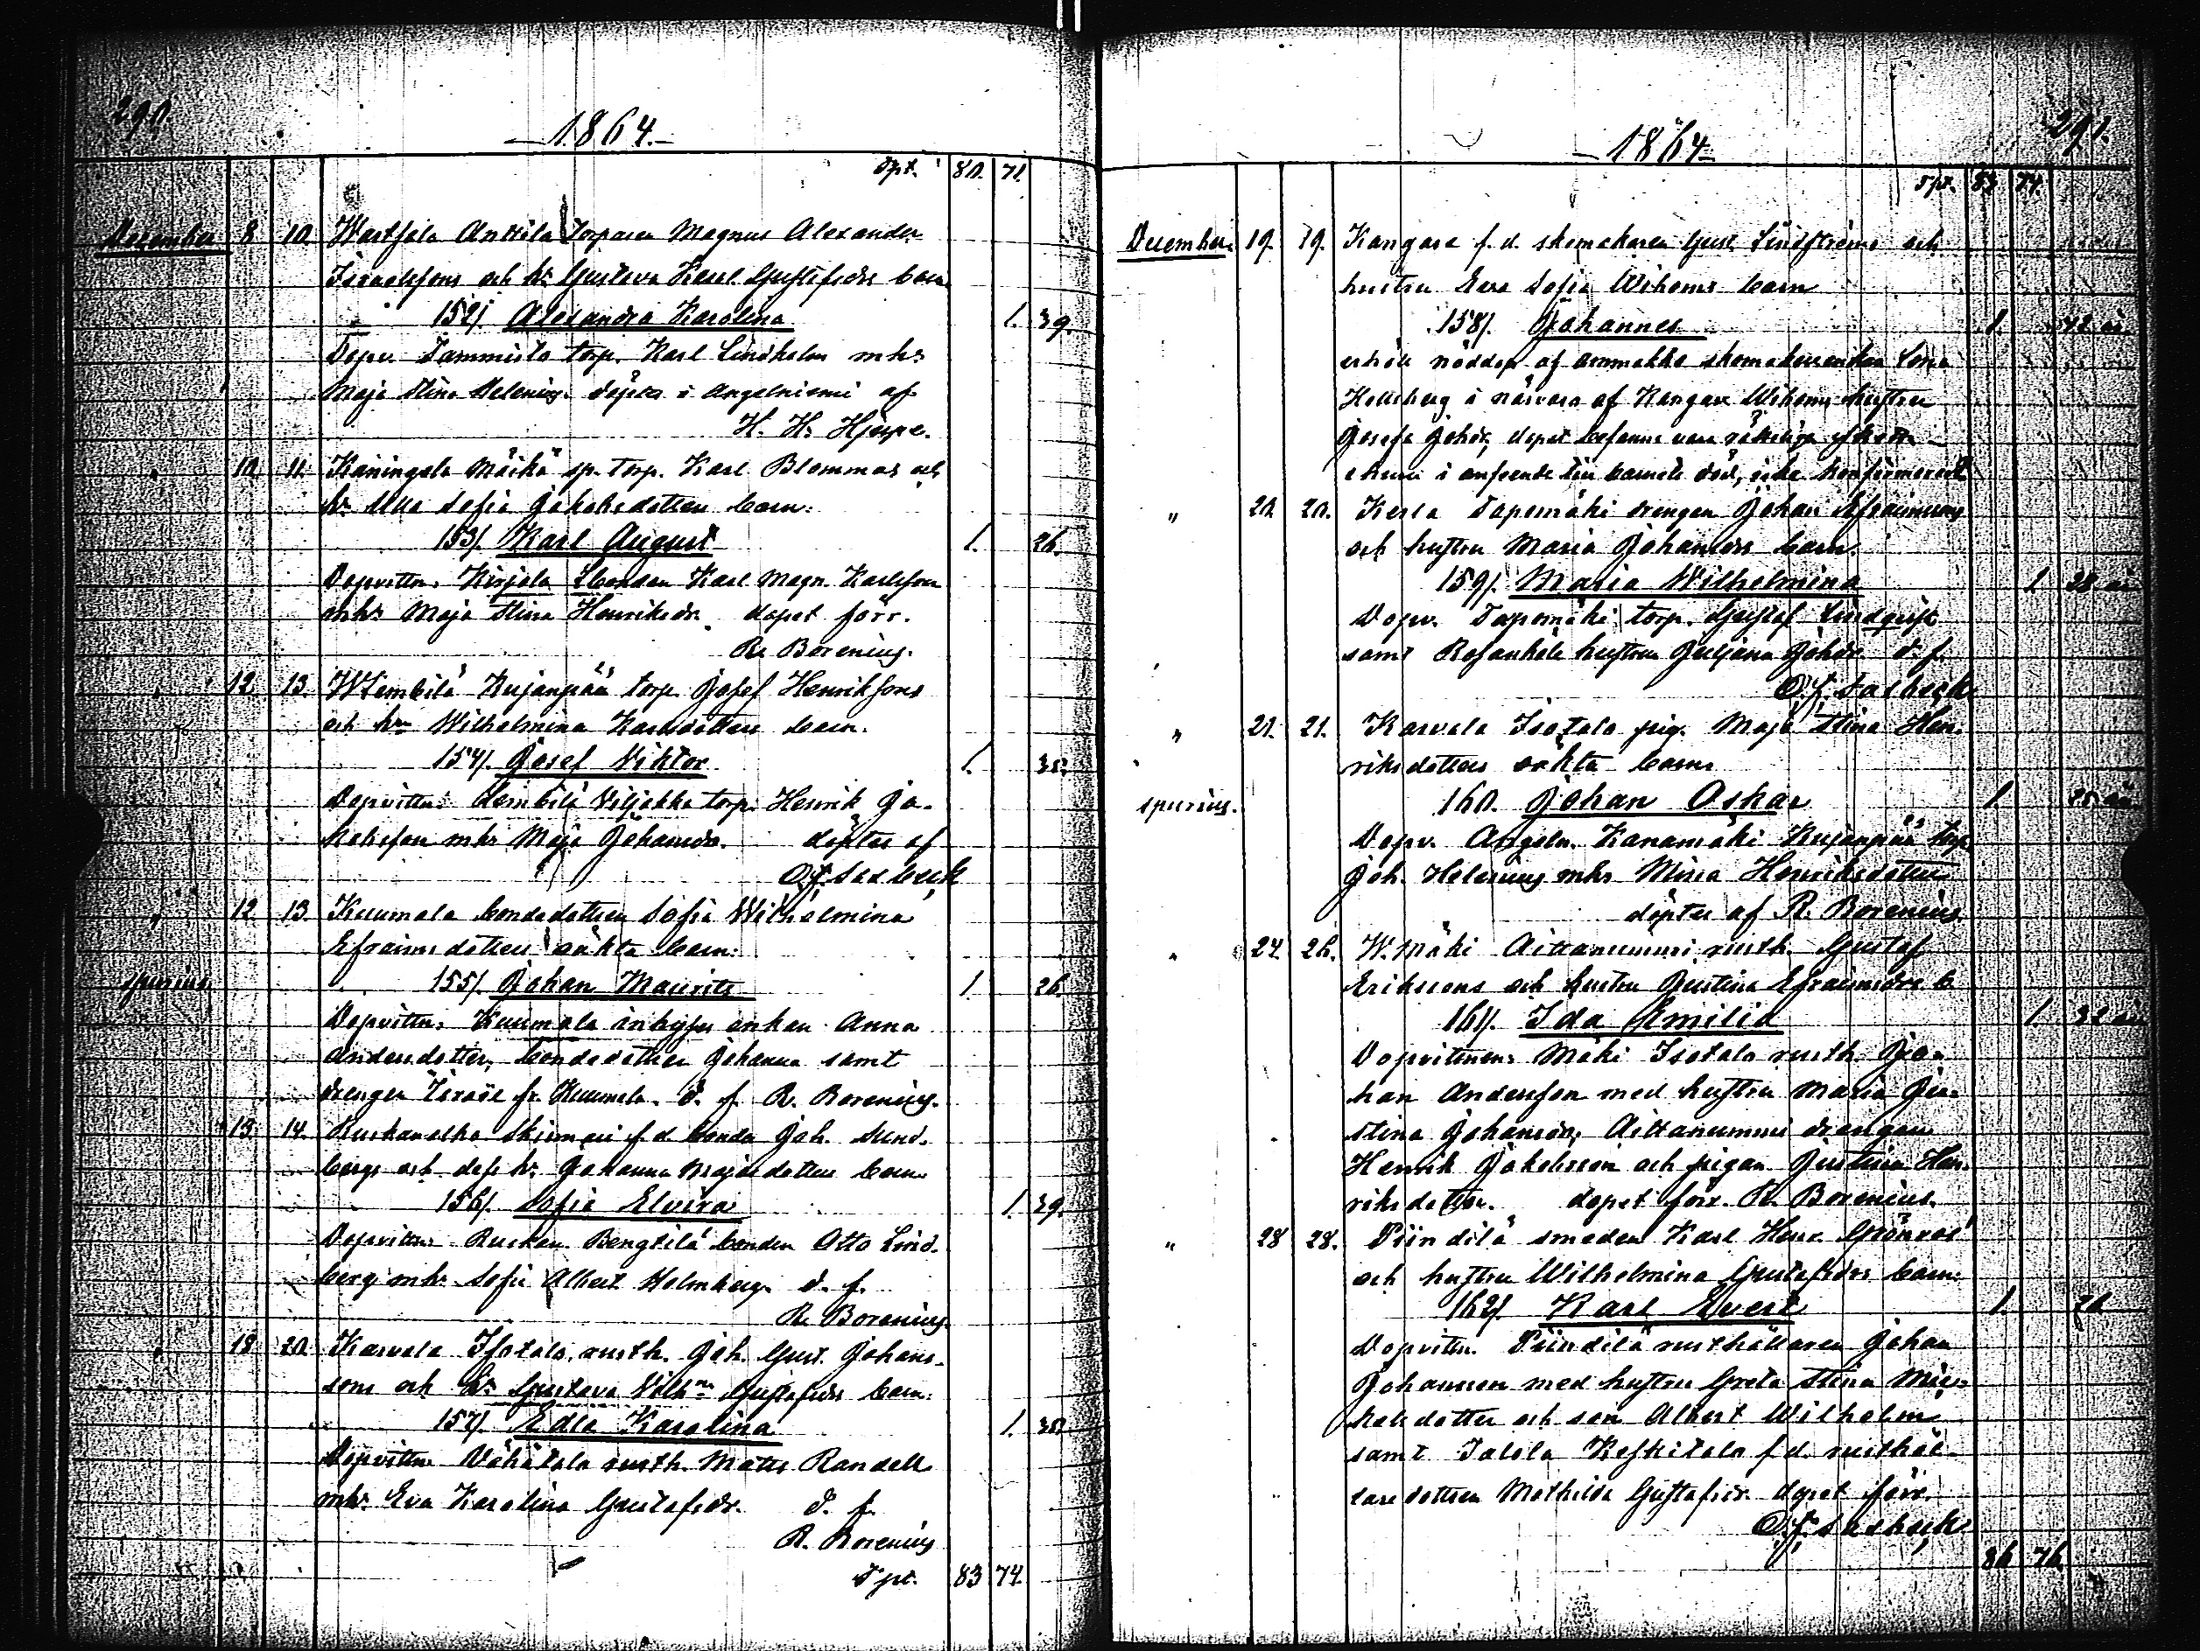 290.
1864.
Spt. 80. 71.
December 8 10 Wartsala Anttila Torparen Magnus Alexander
Israelssons och h. Gustava Karol. Gustafsdrs barn
152/. Alexandra Karolina 1. 39.
Dopv. Tammisto torp. Karl Lindholm mhs
Maja Stina Helenius. döptes i Angelniemi af
H. H. Hjerpe.
" 10 11. Kaningola Märkä sp. torp. Karl Blommas och
h. Ulla Sofia Jakobsdotters barn:
153/. Karl August 1. 26.
Dopvittn. Kirjola bonden Karl Magn. Karlsson
mhs Maja Stina Henriksdr. dopet förr.
R. Borenius.
" 12. 13. Kujanpää torp. Josef Henrikssons
och hu Wilhelmina Karlsdotters barn.
154/. Josef Viktor 1. 35.
Dopvittn: Viljakka torp. Henrik Ja-
kobsson mhs Maja Johansdr. döptes af
O. J. Saxbeck
" 12 13. Kuumola bondedottren Sofia Wilhelmina
Efraimsdotters oäkta barn:
spurius 155/. Johan Maurits 1. 26.
Dopvittn. Kuumola inhyses enkan Anna
Andersdotter, bondedottren Johanna samt
drengen Israel fr. Kuumola. d. f. R. Borenius.
13. 14. f. d. bonde Joh. Sund-
bergs och dess h. Johanna Majasdotters barn
156/. Sofia Elvira 1. 39.
Dopvittn. Ruskon Bengtilä bonden Otto Lind-
berg mhs Sofia Albert. Holmberg. d. f.
R. Borenius.
" 18 20. Karvela Isotalo rusth. Joh. Gust. Johans-
sons och h. Gustava Wilhna Gustafsdrs barn:
157/. Edla Karolina 1. 30.
Dopvittn. Vähätalo rusth. Matts Randell
mhs Eva Karolina Gustafsdr. d. f.
R. Borenius
Spt. 83 74.
291.
1864
Spt. 83 74.
December 19. 19. Kangare f. d. skomakaren Gust. Lindströms och
hustru Eva Sofia Wihoms barn
158/. Johannes 1. 42 år.
erhöll nöddop af skomakareenkan Lovisa
i närvaro af Kangare hustrun
Josefa Johdr, dopet befanns vara riktigt
i anseende till barnets död, icke konfirmeradt
" 20. 20. Kerla Tapomäki drengen Johan Efraimssons
och hustru Maria Johansdrs barn.
159/. Maria Wilhelmina 1 28 år
Dopv. Tapomäki torp. Gustaf Lindqvist
samt hustrun Juljana Johdr. d. f.
O. J. Saxbeck
" 21. 21. Karvela Isotalo pig. Maja Stina Hen-
riksdotters oäkta barn
spurius. 160. Johan Oskar 1. 25 år
Dopv. Angeln. Kanamäki Kujanpää torp
Joh. Helenius mhs Mina Henriksdotter
döptes af R. Borenius
" 24. 26. W. Mäki Aittanummi rusth. Gustaf
Erikssons och hustru Justina Efraimsdrs b.
161/. Ida Emilia 1. 32 år
Dopvittnen: Mäki Isotalo rusth. Jo-
han Andersson med hustru Maria Ju-
stina Johansdr, Aittanummi drengen
Henrik Jakobsson och pigan Justina Hen-
riksdotter. dopet förr. R. Borenius.
" 28 28. Piindilä smeden Karl Henr. Grönroos
och hustru Wilhelmina Gustafsdrs barn:
162/. Karl Evert 1. 26
Dopvittn. Piindilä rusthållaren Johan
Johansson med hustru Greta Stina Mic-
kelsdotter och son Albert Wilhelm
samt Keskitalo f. d. rusthål-
laredottren Mathilda Gustafsdr. dopet förr.
O. J. Saxbeck
86 76.